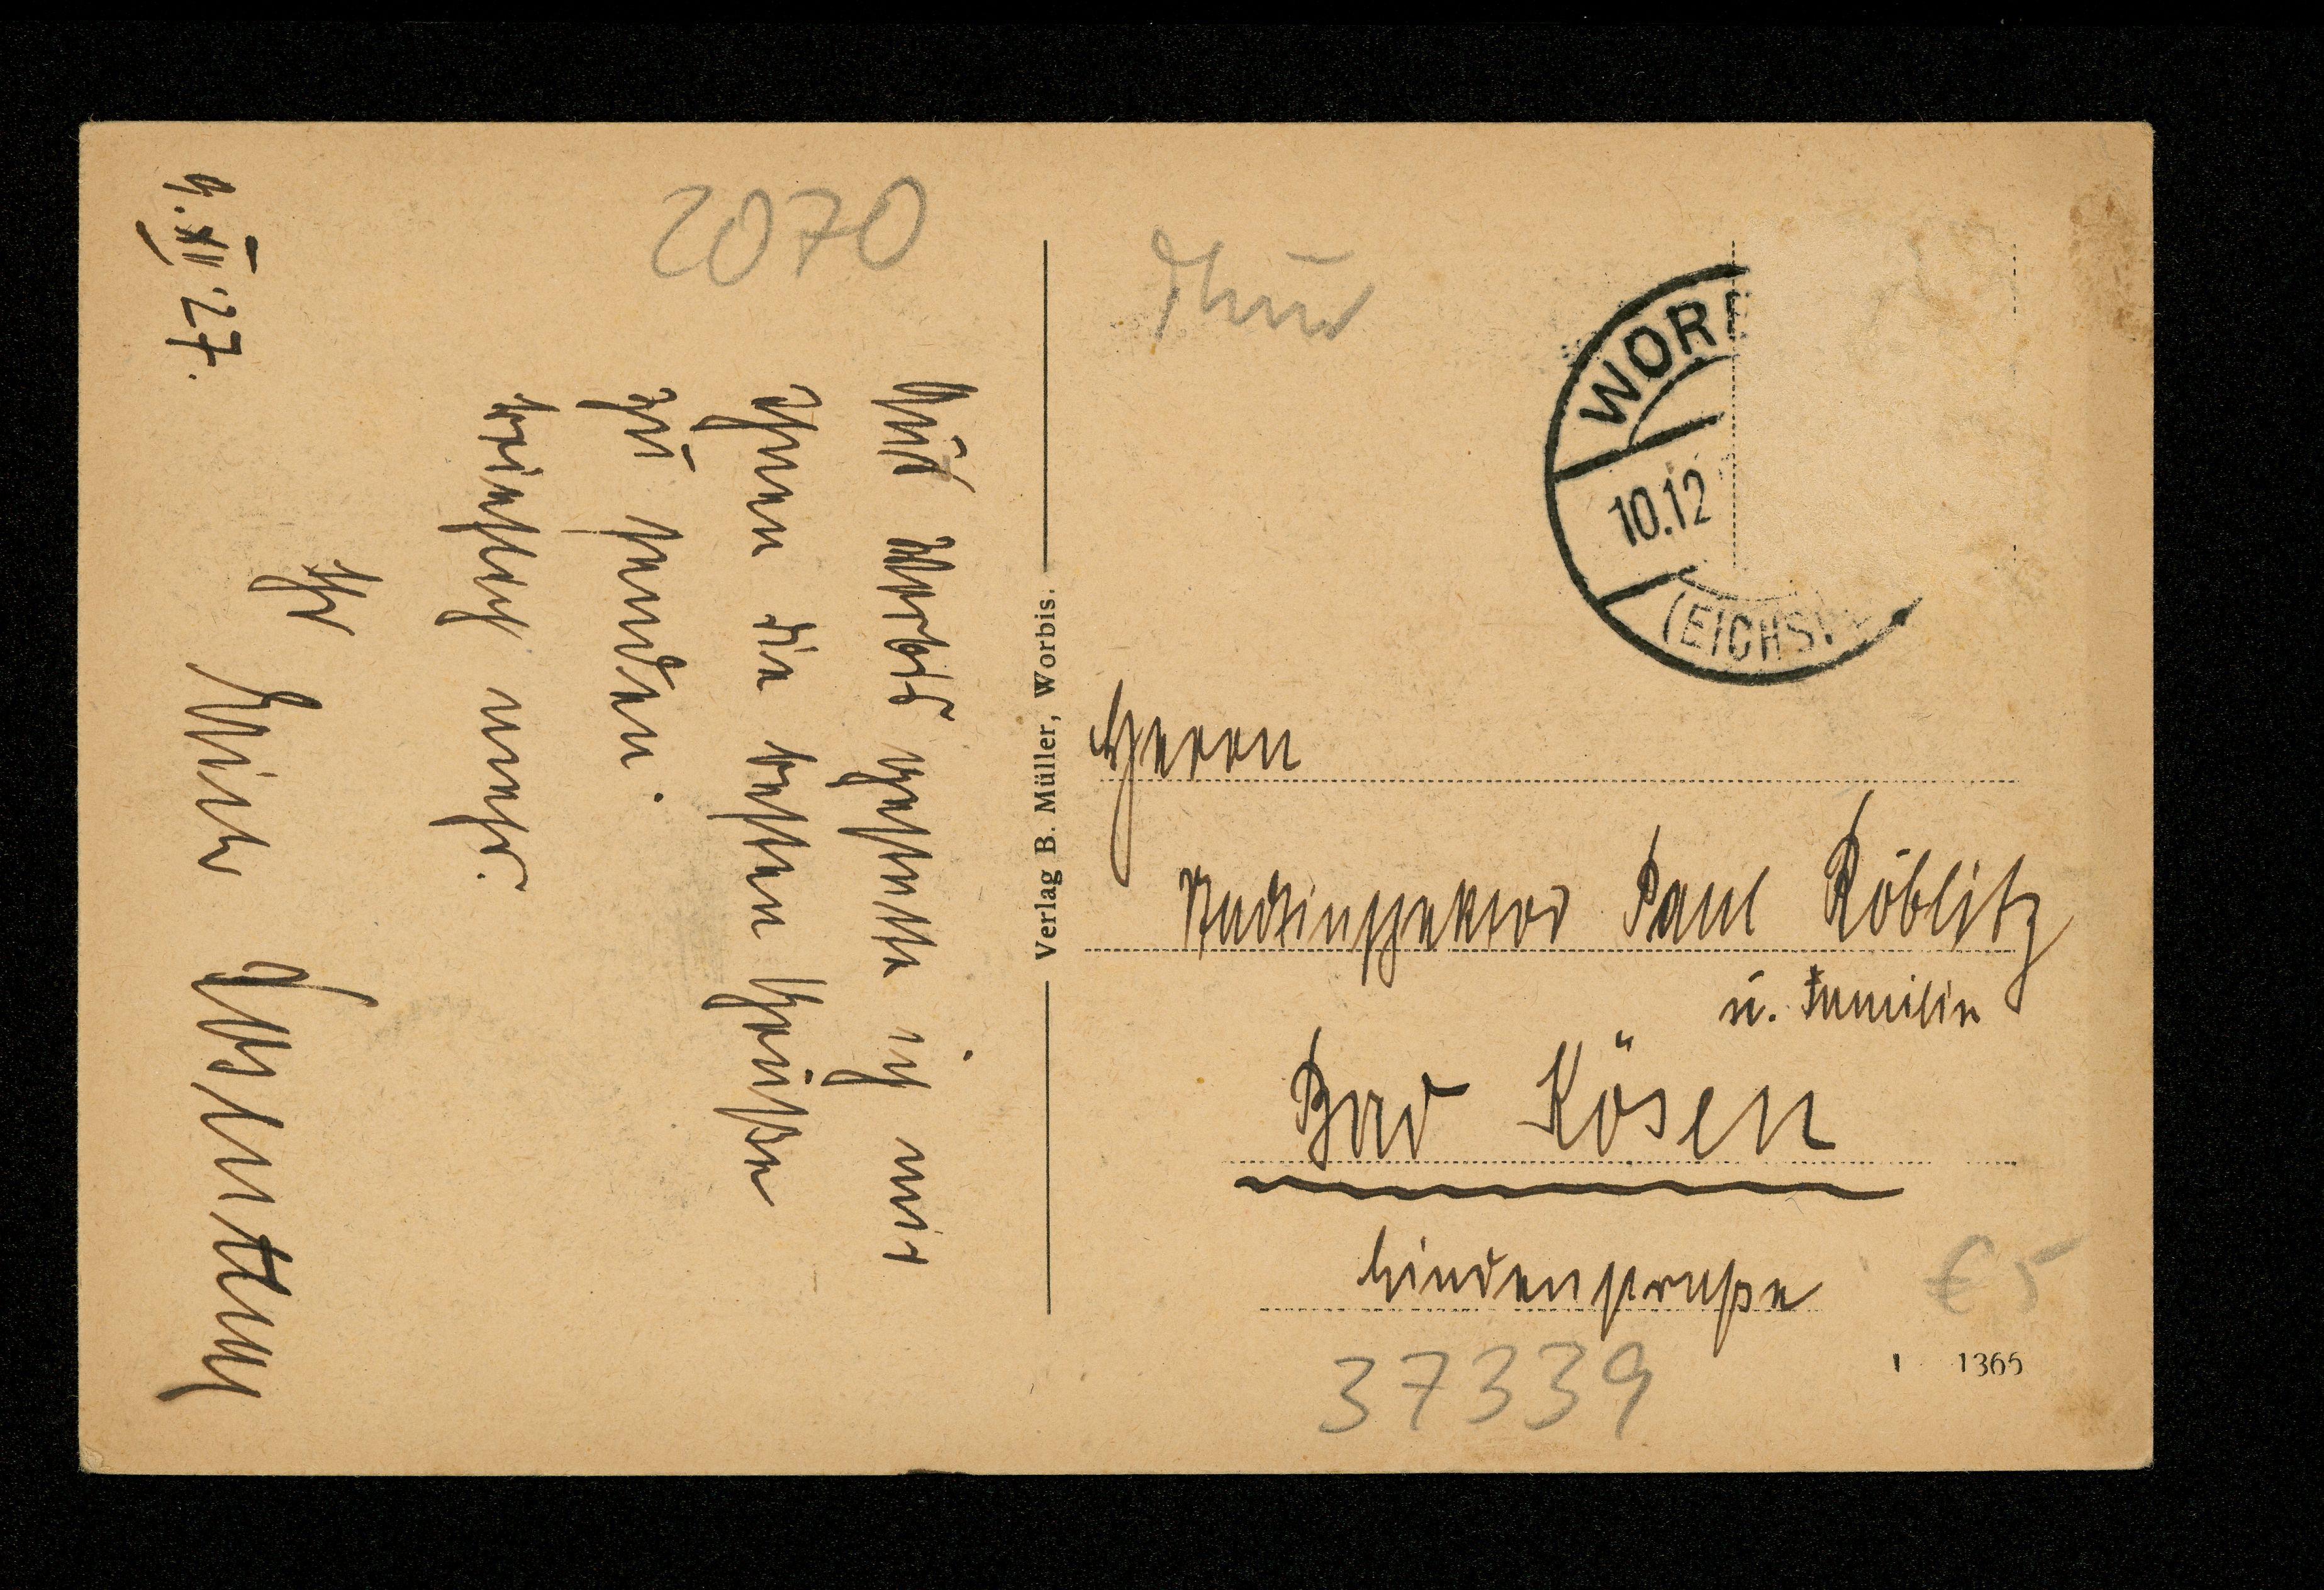 9. XII. 27.
Aus Worbis gestatte ich mir
Ihnen die besten Grüße
zu senden.
brieflich mehr.
Ihr
2070
Verlag B. Müller, Worbis.
Thür
WORB
10.12
(EICHSF
Herrn
Stadtinspektor Paul Röblitz
u. Familie
Bad Kösen
Lindenstraße
€ 5
37339
1 1365